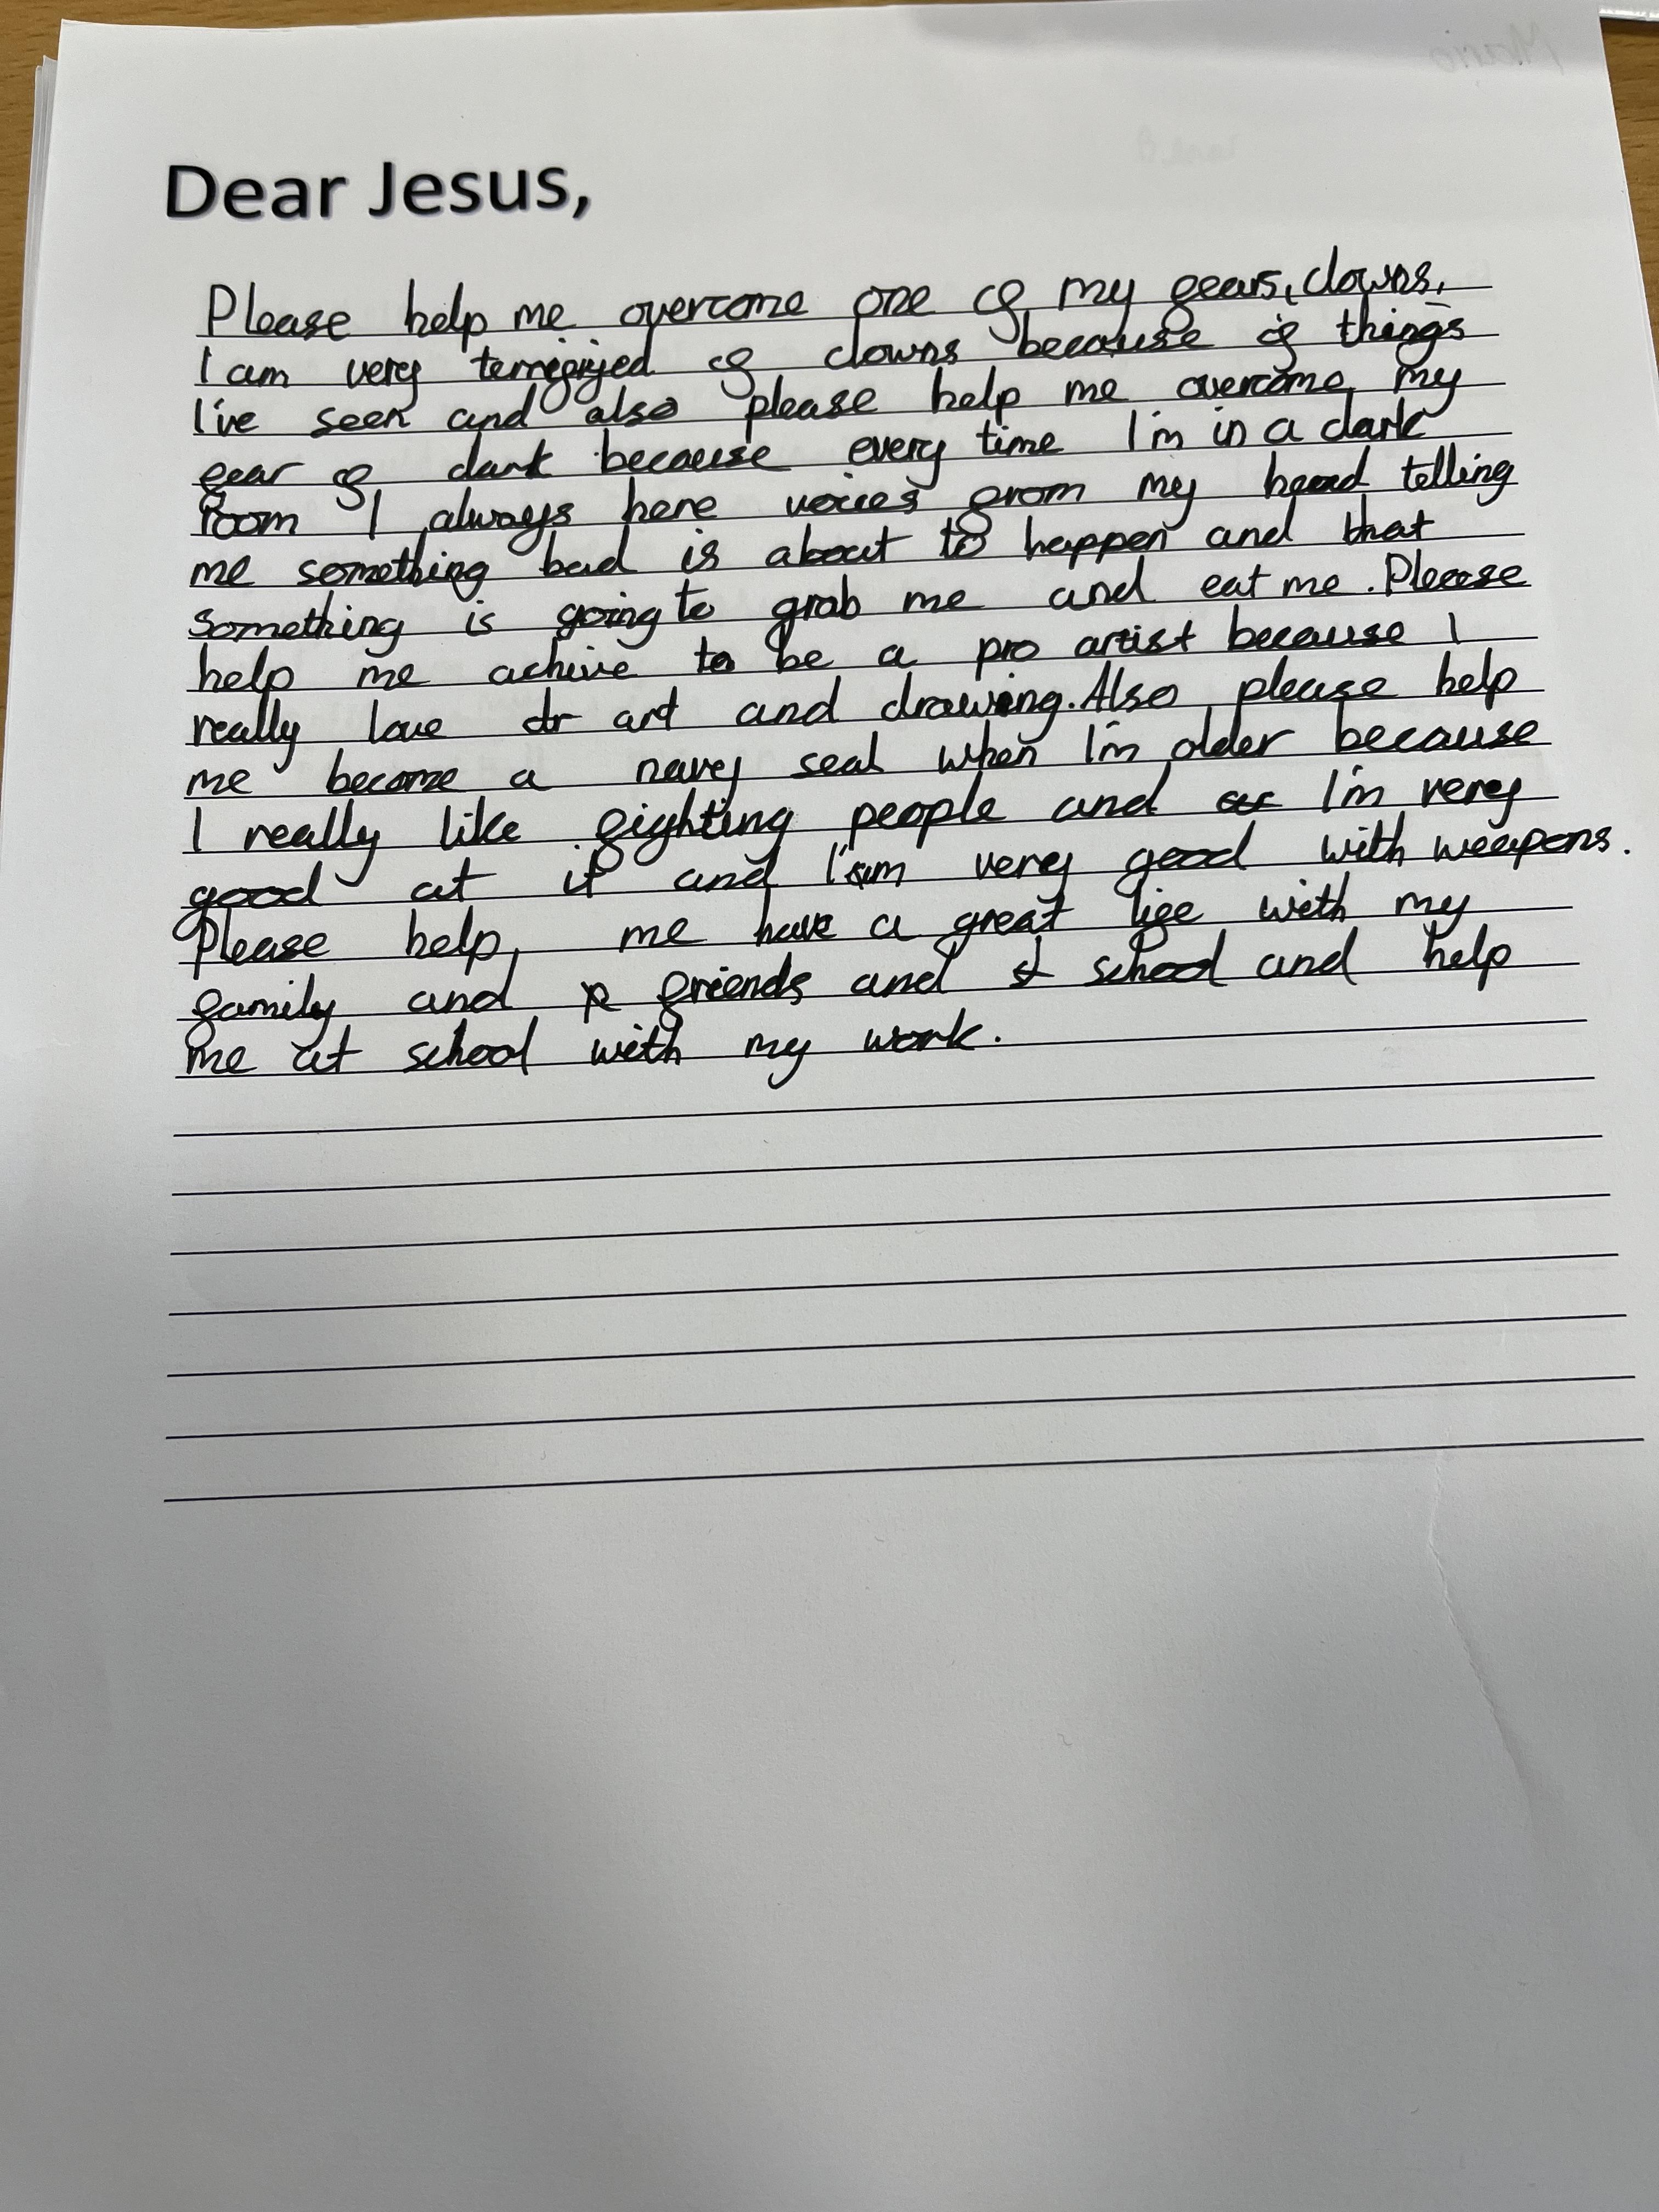 Dear Jesus,
Please help me overcome one of my fears, clowns.
I am very terrifiyed of clowns because of things
I've seen and also please help me overcome my
fear of dark because every time I'm in a dark
room I always here voices from my head telling
me something bad is about to happen and that
something is going to grab me and eat me. Please
help me achive to be a pro artist because I
really love art and drawing. Also please help
me become a navy seal when I'm older because
I really like fighting people and I'm very
good at it and I am very good with weapons.
Please help me have a great life with my
family and friends and school and help
me at school with my work.